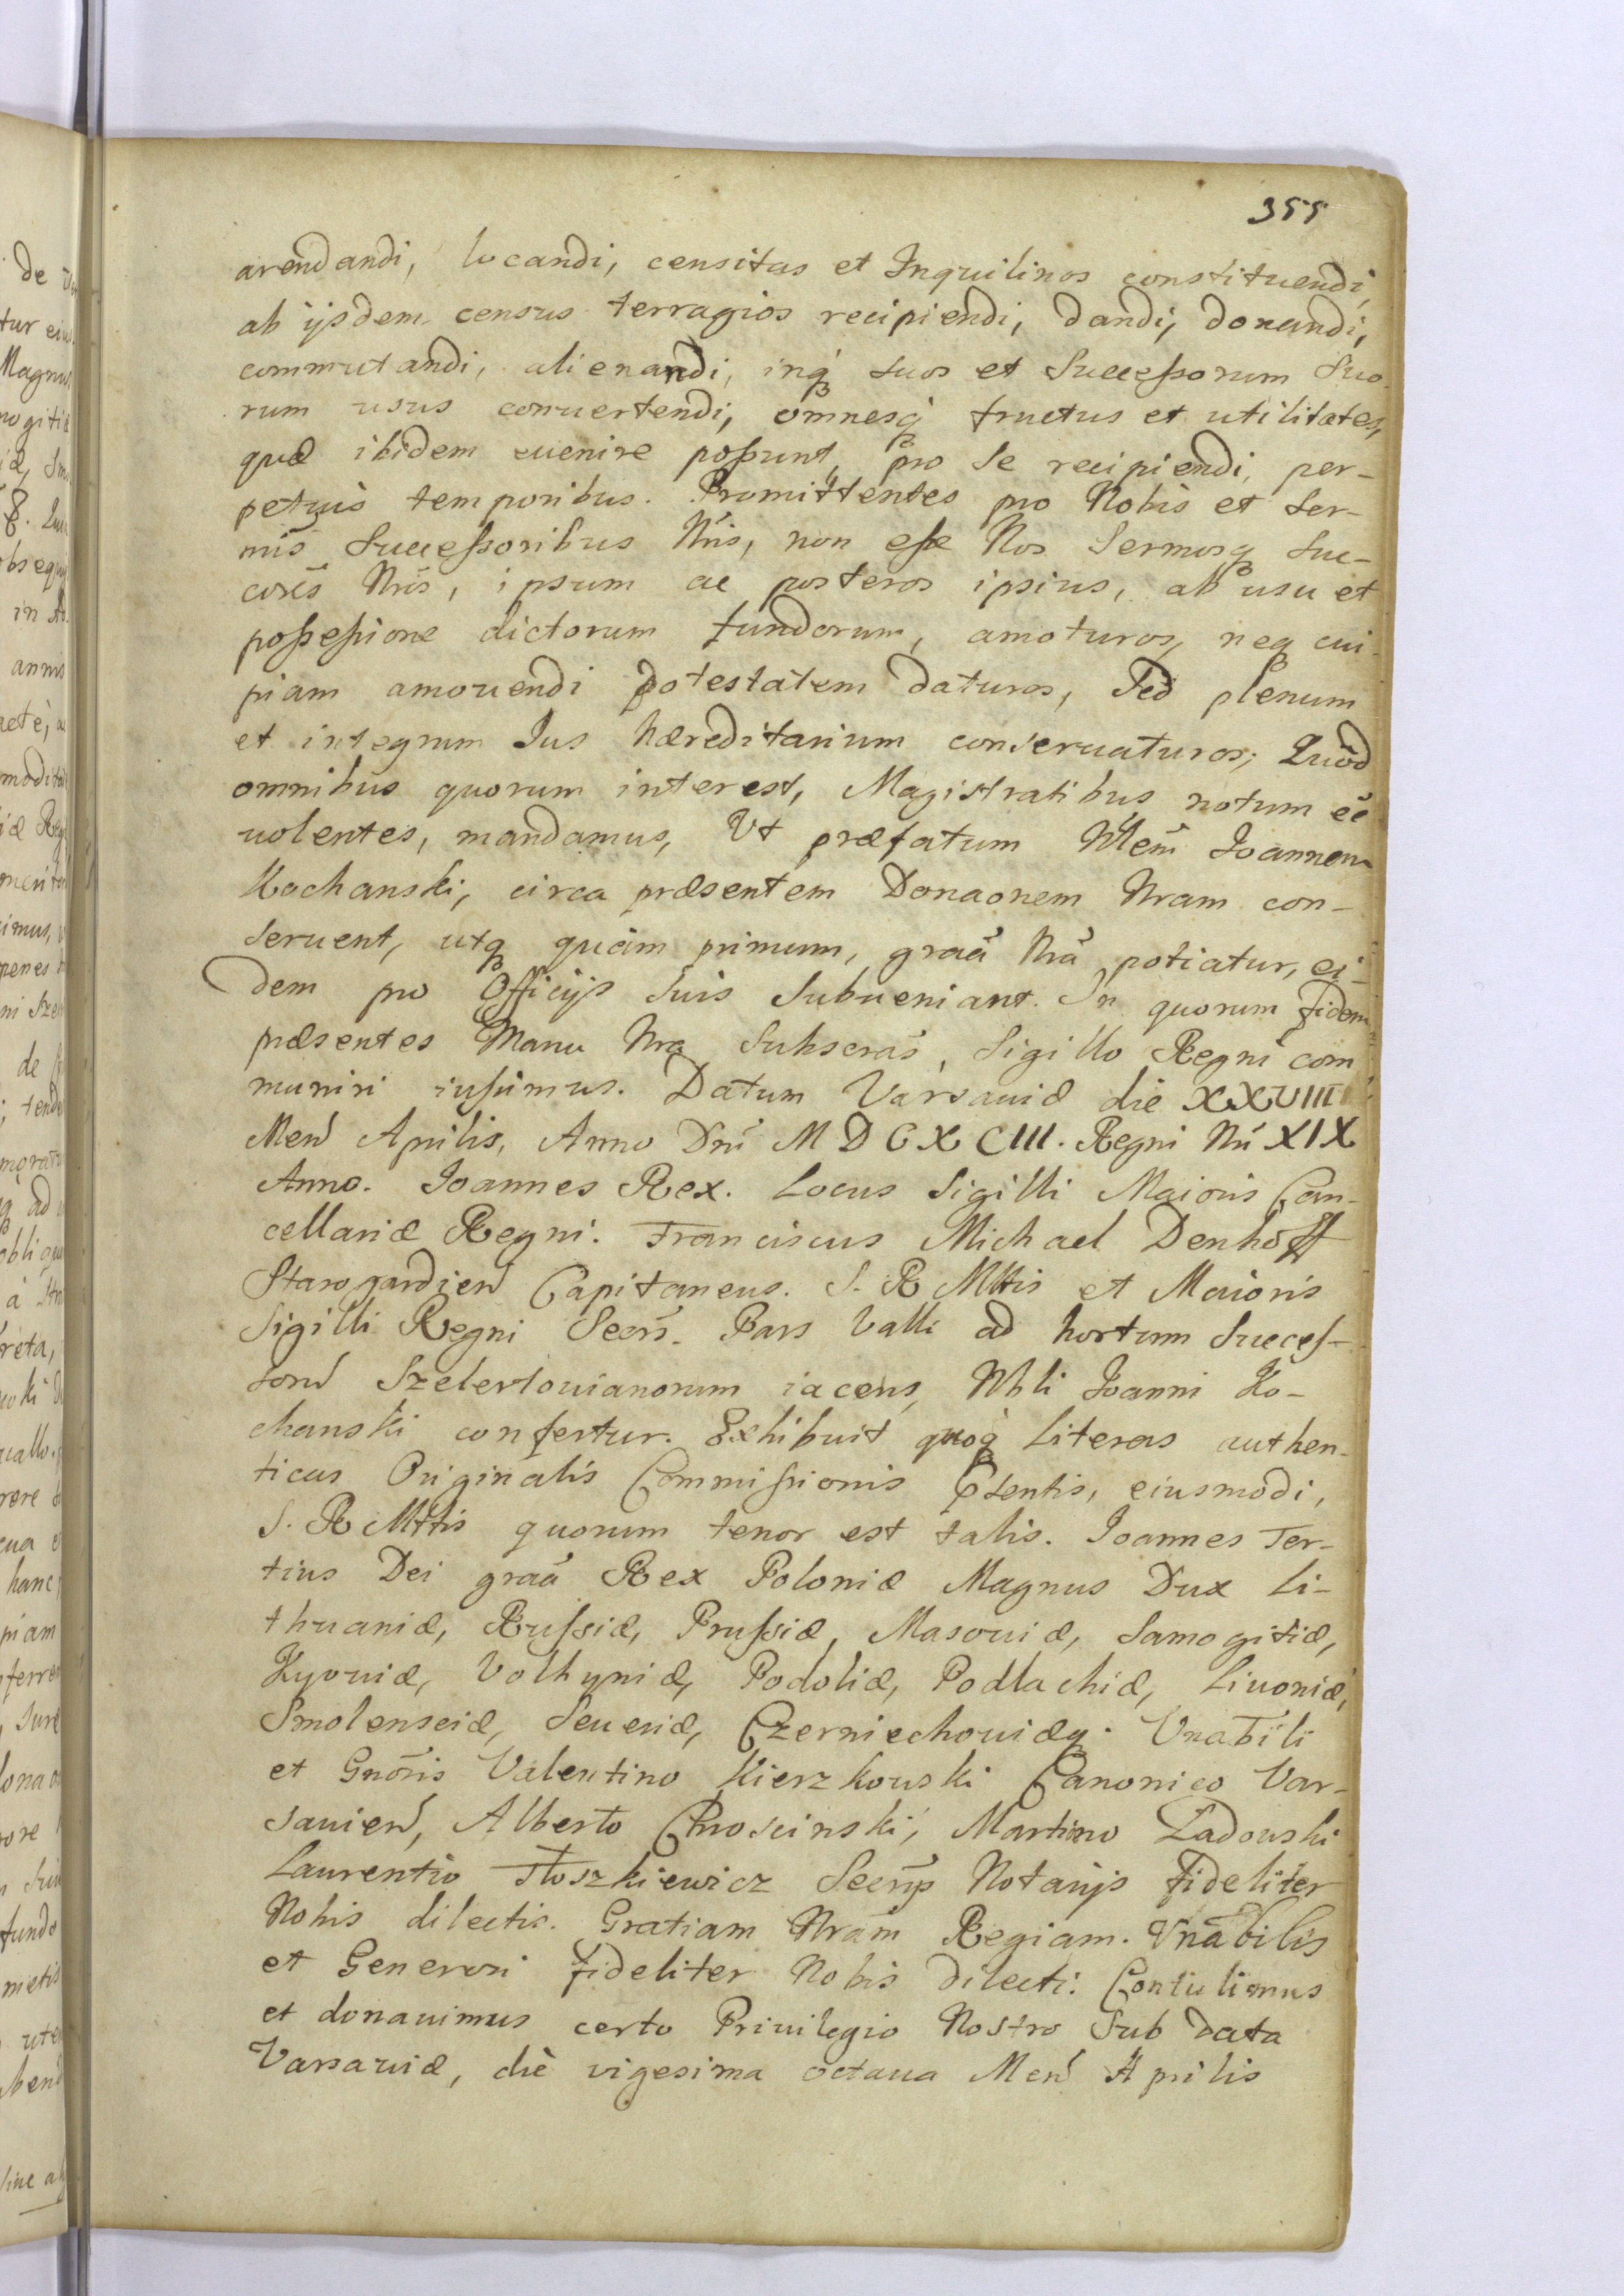 355
arendandi, locandi, censitas et Inquilinos constituendi,
ab ijsdem census terragios recipiendi, dandi, donandi,
commutandi, alienandi, inq̃ suos et Successorum Suo
rum usus conuertendi, omnesq̃ fructus et utilitates,
quæ ibidem euenire possunt, pro se recipiendi, per-
petuis temporibus. Promittentes pro Nobis et Ser-
mis Successoribus Nris, non esse Nos Sermosq̃ Suc-
cores Nros, ipsum ac posteros ipsius, ab usu et
possessione dictorum fundorum, amoturos, neq̃ cui-
piam amouendi potestatem daturos, Sed plenum
et integrum Ius hæreditarium conseruaturos; Quod
omnibus quorum interest, Magistratibus notum eẽ
uolentes, mandamus, Vt præfatum Nblem Joannem
Kochanski, circa præsentem Donaonem Nram con-
seruent, utq̃ quàm primum, graã Nrã potiatur, ei-
dem pro Officijs suis Subueniant. In quorum fidem
præsentes Manu Nra Subscras, Sigillo Regni com
muniri iussimus. Datum Varsauiæ die XXVIII
Mens Aprilis, Anno Dni MDCXCIII. Regni Nri XIX
Anno. Joannes Rex. Locus Sigilli Maioris Can-
cellariæ Regni. Franciscus Michael Denhoff
Starogardiens Capitaneus. S. R Mttis et Maioris
Sigilli Regni Secrs. Pars Valli ad hortum Succes-
sorũ Szelertouianorum iacens, Nbli Joanni Ko-
chanski confertur. Exhibuit quoq̃ Literas authen-
ticas Originalis Commissionis Ptentis, eiusmodi,
S. R Mttis quorum tenor est talis. Joannes Ter-
tius Dei graã Rex Poloniæ Magnus Dux Li-
thuaniæ, Russiæ, Prussiæ, Masouiæ, Samogitiæ,
Kyouiæ, Volhyniæ, Podoliæ, Podlachiæ, Liuoniæ,
Smolensciæ, Seueriæ, Czerniechouiæq̃. Vnabili
et Gnõris Valentino Kierzkouski Canonico Var-
sauiens, Alberto Chroscinski, Martino Ladouski
Laurentio Tłoszkiewicz Secrijs Notarijs fideliter
Nobis dilectis. Gratiam Nram Regiam. Vnabilis
et Generosi fideliter Nobis dilecti. Contulimus
et donauimus certo Priuilegio Nostro Sub data
Varsauiæ, die vigesima octaua Mens Aprilis